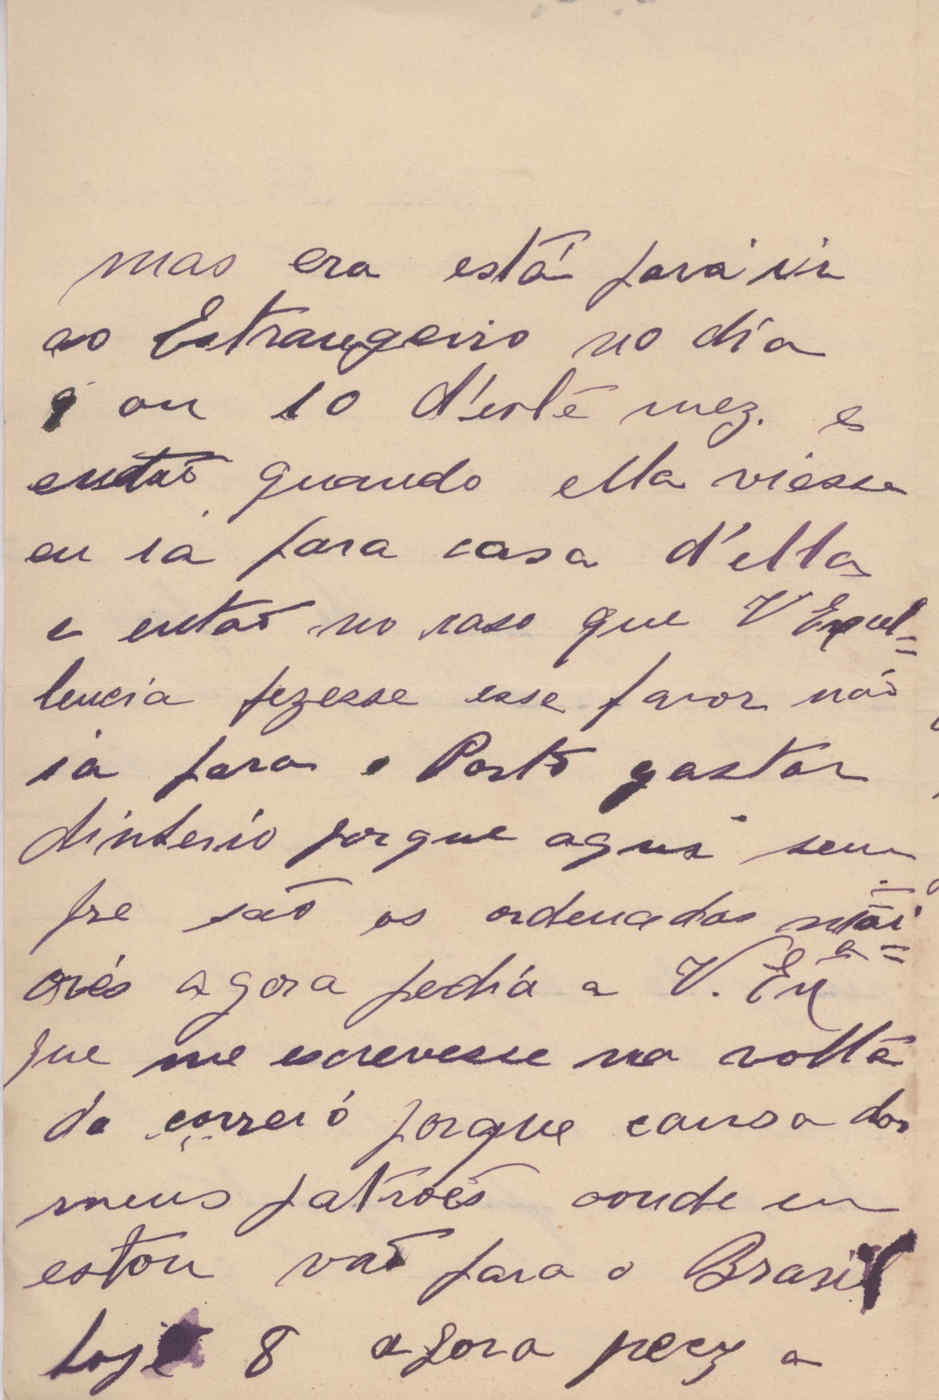 mas era está para ir
ao Estrangeiro no dia
9 ou 10 d'este mez. e
então quando ella viesse
eu ia para casa d'ella
e então no caso que V Excel=
lencia fezesse esse favor não
ia para o Porto gastar
dinherio porque aqui sem
pre são os ordenados mai=
ores agora pedia a V. Exª
que me escrevesse na volta
do correio porque causa dos
meus patrões aonde eu
estou vão para o Brasil
hoje 8 agora peço a